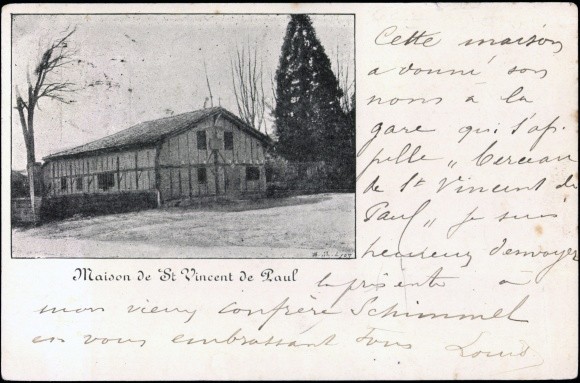 Cette maison
a donné son
nom à la
gare qui s'ap
pelle „ Berceau
de St Vincent de
Paul „ je suis
heureux d'envoyer
Maison de St Vincent de Paul
la présente à
mon vieux confrère Schimmel
en vous embrassant tous Louis